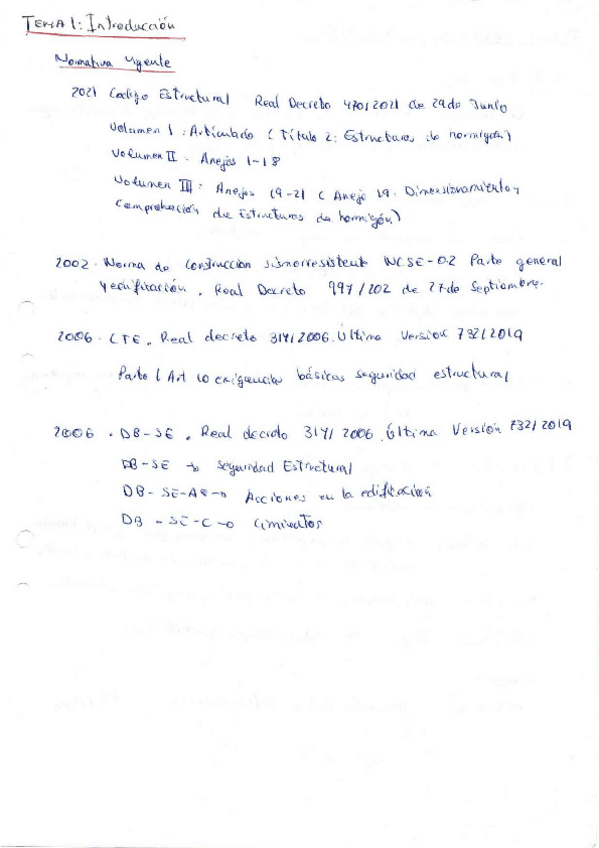 TEMA 1: Introducción
Normativa Vigente
2021 Codigo Estructural Real Decreto 470/2021 de 29 de Junio
Volumen I : Articulado (Título 2: Estructuras de hormigón)
Volumen II : Anejos 1-18
Volumen III : Anejos 19-21 ( Anejo 19: Dimensionamiento y
Comprobación de Estructuras de hormigón)
2002. Norma de Construcción sismorresistente NCSE-02 Parte general
y edificación. Real Decreto 997/202 de 27 de Septiembre.
2006. CTE. Real decreto 314/2006. Última Versión 732/2019
Parte I Art 10 exigencias básicas seguridad estructural
2006. DB-SE. Real decreto 314/2006. Última Versión 732/2019
DB-SE → Seguridad Estructural
DB-SE-AE → Acciones en la edificación
DB-SE-C → Cimientos